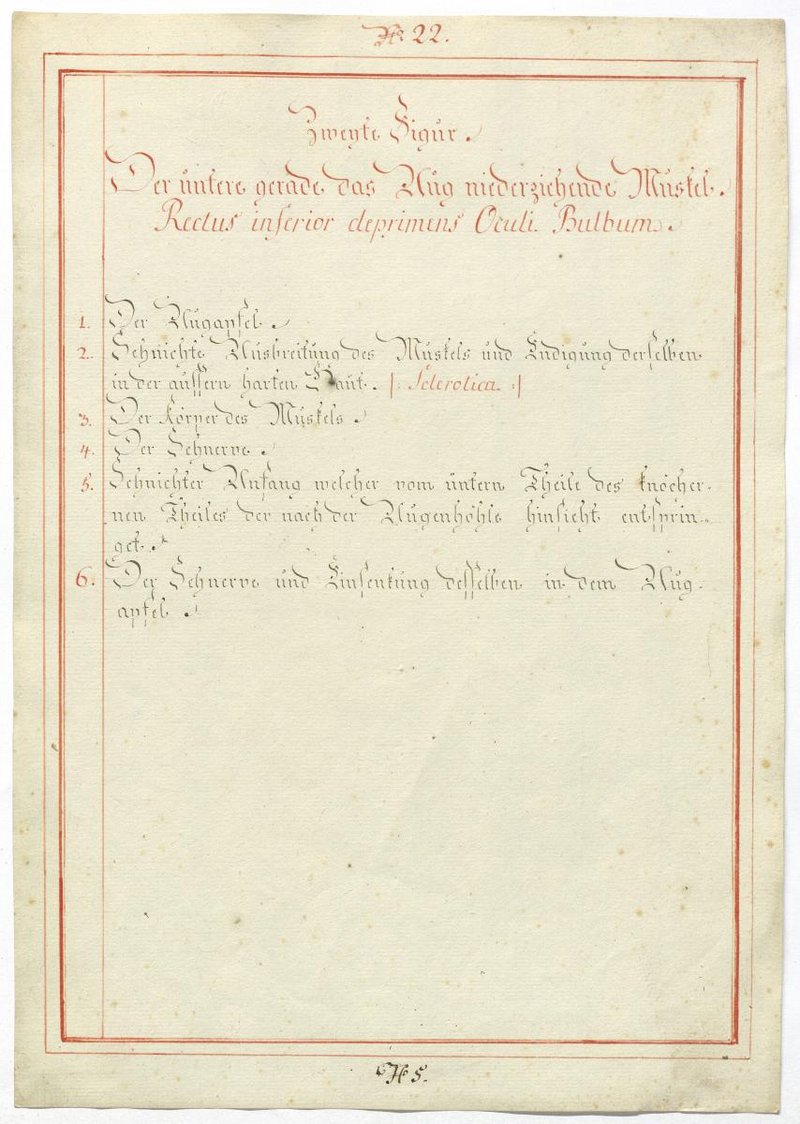 N: 22.
Zweyte Figur.
Der untere gerade das Aug niederziehende Muskel.
Rectus inferior deprimens Oculi Bulbum.
1. Der Augapfel.
2. Sehnichte Ausbreitung des Muskels und Endigung derselben
in der äussern harten Haut. |: Sclerotica :|
3. Der Körper des Muskels.
4. Der Sehnerve.
5. Sehnichter Anfang welcher vom untern Theile des knöcher-
nen Theiles der nach der Augenhöhle hinsicht entsprin-
get.
6. Der Sehnerve und Einsenkung desselben in dem Aug-
apfel.
N: 5.